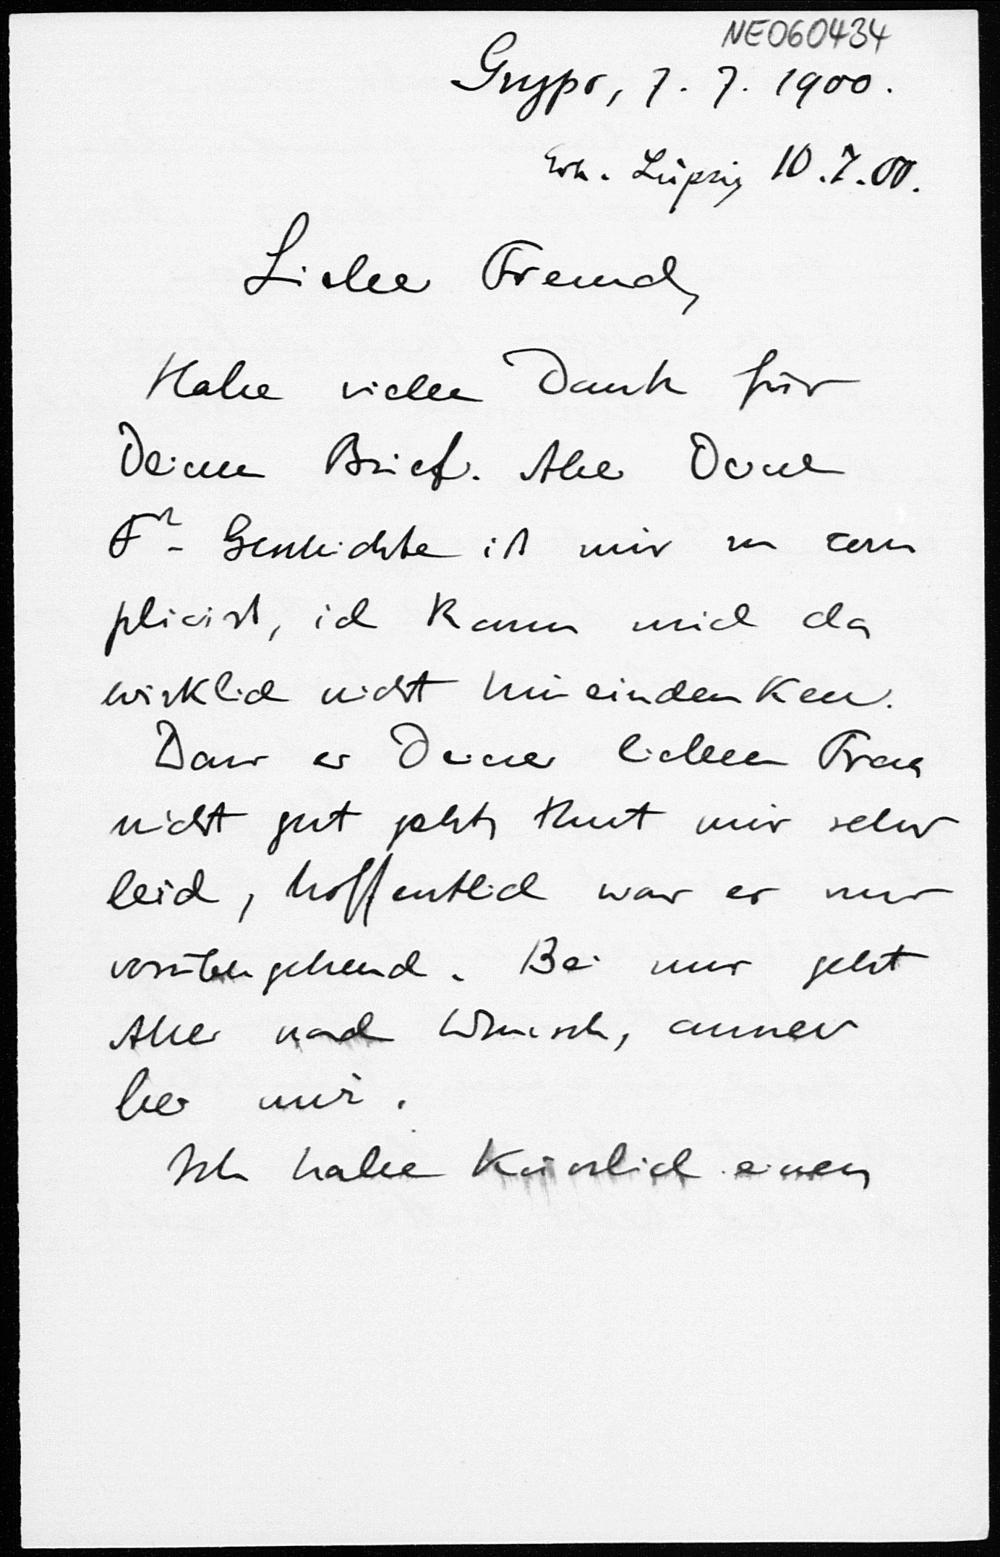 NE060434
Gryps, 7. 7. 1900.
Erh. Leipzig 10.7.00.
Lieber Freund,
Habe vielen Dank für
Deinen Brief. Aber Deine
F²- Geschichte ist mir zu com
plicirt, ich kann mich da
wirklich nicht hineindenken.
Dass es Deiner lieben Frau
nicht gut geht, thut mir sehr
leid, hoffentlich war es nur
vorübergehend. Bei uns geht
Alles nach Wunsch, ausser
bei mir.
Ich habe kürzlich einen